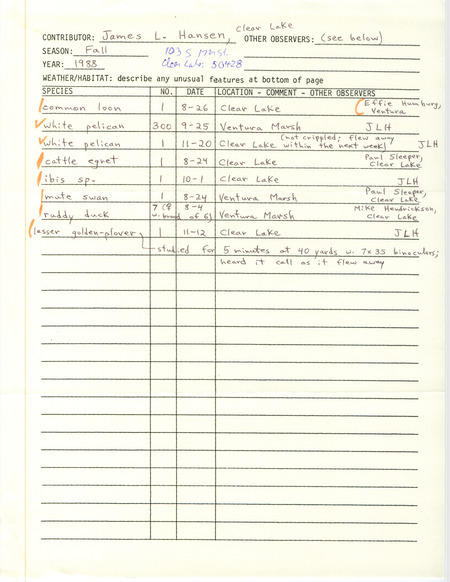 Clear Lake
CONTRIBUTOR: James L. Hansen, OTHER OBSERVERS: (see below)
SEASON: Fall 103 S
YEAR: 1988 Clear Lake 50428
WEATHER/HABITAT: describe any unusual features at bottom of page
SPECIES NO. DATE LOCATION - COMMENT - OTHER OBSERVERS
common loon 1 8-26 Clear Lake (Effie Humburg, Ventura
white pelican 300 9-25 Ventura Marsh JLH
white pelican 1 11-20 (not crippled; flew away Clear Lake within the next week) JLH
cattle egret 1 8-24 Clear Lake Paul Sleeper, Clear Lake
ibis sp. 1 10-1 Clear Lake JLH
mute swan 1 8-24 Ventura Marsh Paul Sleeper, Clear Lake
ruddy duck 7 (♀ w. brood of 6) 8-4 Ventura Marsh Mike Hendrickson, Clear Lake
lesser golden-plover 1 11-12 Clear Lake JLH
studied for 5 minutes at 40 yards w. 7x35 binoculars;
heard it call as it flew away